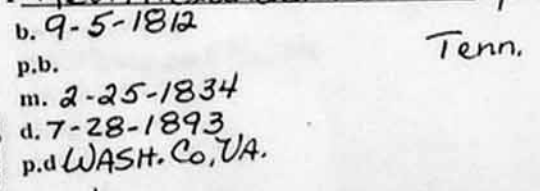 b. 9-5-1812
Tenn.
p.b.
m. 2-25-1834
d. 7-28-1893
p.d WASH. Co, VA.